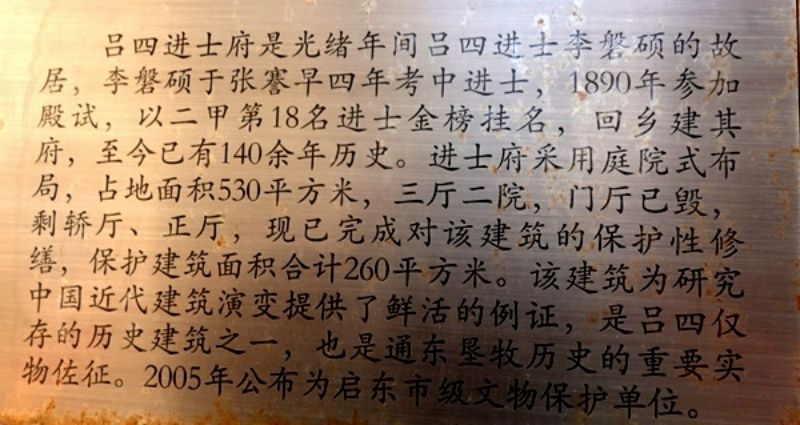 吕四进士府是光绪年间吕四进士李磐硕的故
居，李磐硕于张謇早四年考中进士，1890年参加
殿试，以二甲第18名进士金榜挂名，回乡建其
府，至今已有140余年历史。进士府采用庭院式布
局，占地面积530平方米，三厅二院，门厅已毁，
剩轿厅、正厅，现已完成对该建筑的保护性修
缮，保护建筑面积合计260平方米。该建筑为研究
中国近代建筑演变提供了鲜活的例证，是吕四仅
存的历史建筑之一，也是通东垦牧历史的重要实
物佐征。2005年公布为启东市级文物保护单位。